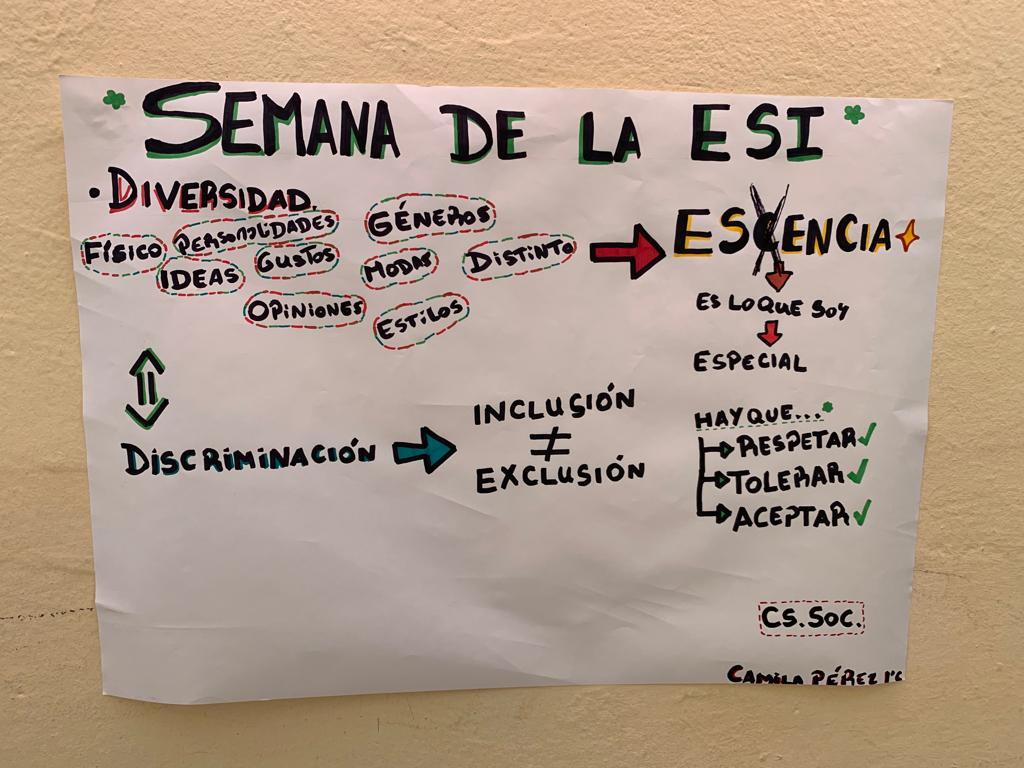 SEMANA DE LA ESI
• DIVERSIDAD.
FÍSICO PERSONALIDADES GÉNEROS
IDEAS GUSTOS MODAS DISTINTO
OPINIONES ESTILOS
ESCENCIA
ES LO QUE SOY
ESPECIAL
DISCRIMINACIÓN
INCLUSIÓN
≠
EXCLUSIÓN
HAY QUE...
RESPETAR
TOLERAR
ACEPTAR
CS.SOC.
CAMILA PÉREZ 1°C